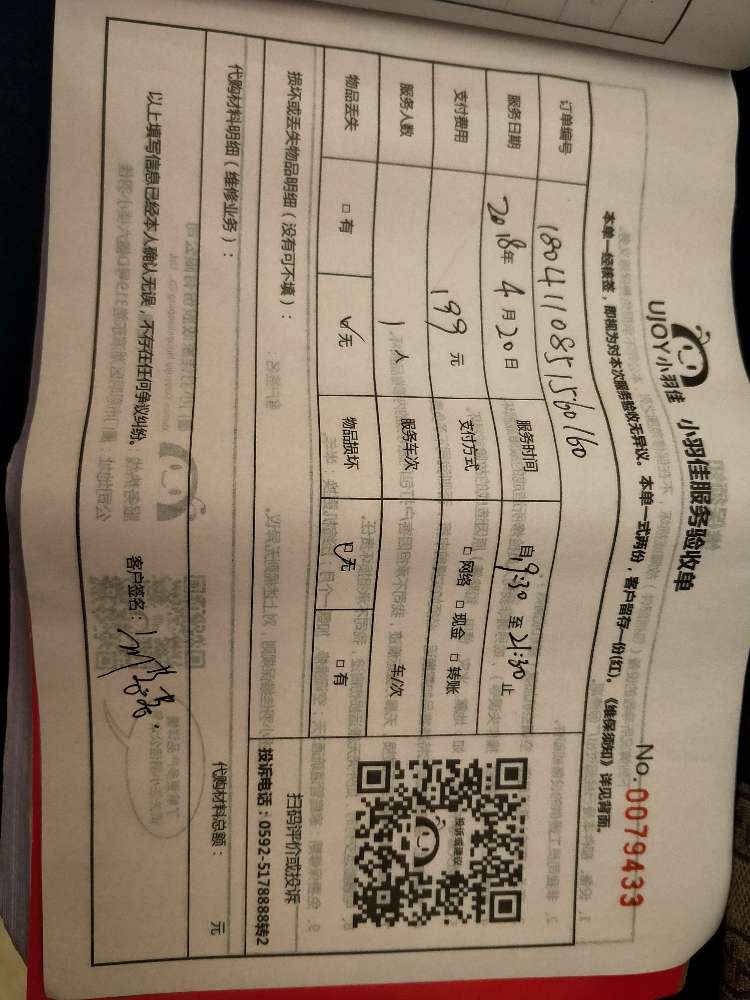 UJOY小羽佳 小羽佳服务验收单 No.0079433
本单一经核签，即视为对本次服务验收无异议。本单一式两份，客户留存一份(红)。《维保须知》详见背面。
订单编号 1804110851560160
服务日期 2018年 4月20日 服务时间 自19:30 至21:30止
支付费用 199元 支付方式 □网络 □现金 □转账
服务人数 1人 服务车次 车/次
物品丢失 □有 ☑无 物品损坏 ☑无 □有
投诉或建议
扫码评价或投诉
投诉电话：0592-5178888转2
损坏或丢失物品明细（没有可不填）：
代购材料明细（维修业务）： 代购材料总额： 元
以上填写信息已经本人确认无误，不存在任何争议纠纷。 客户签名：